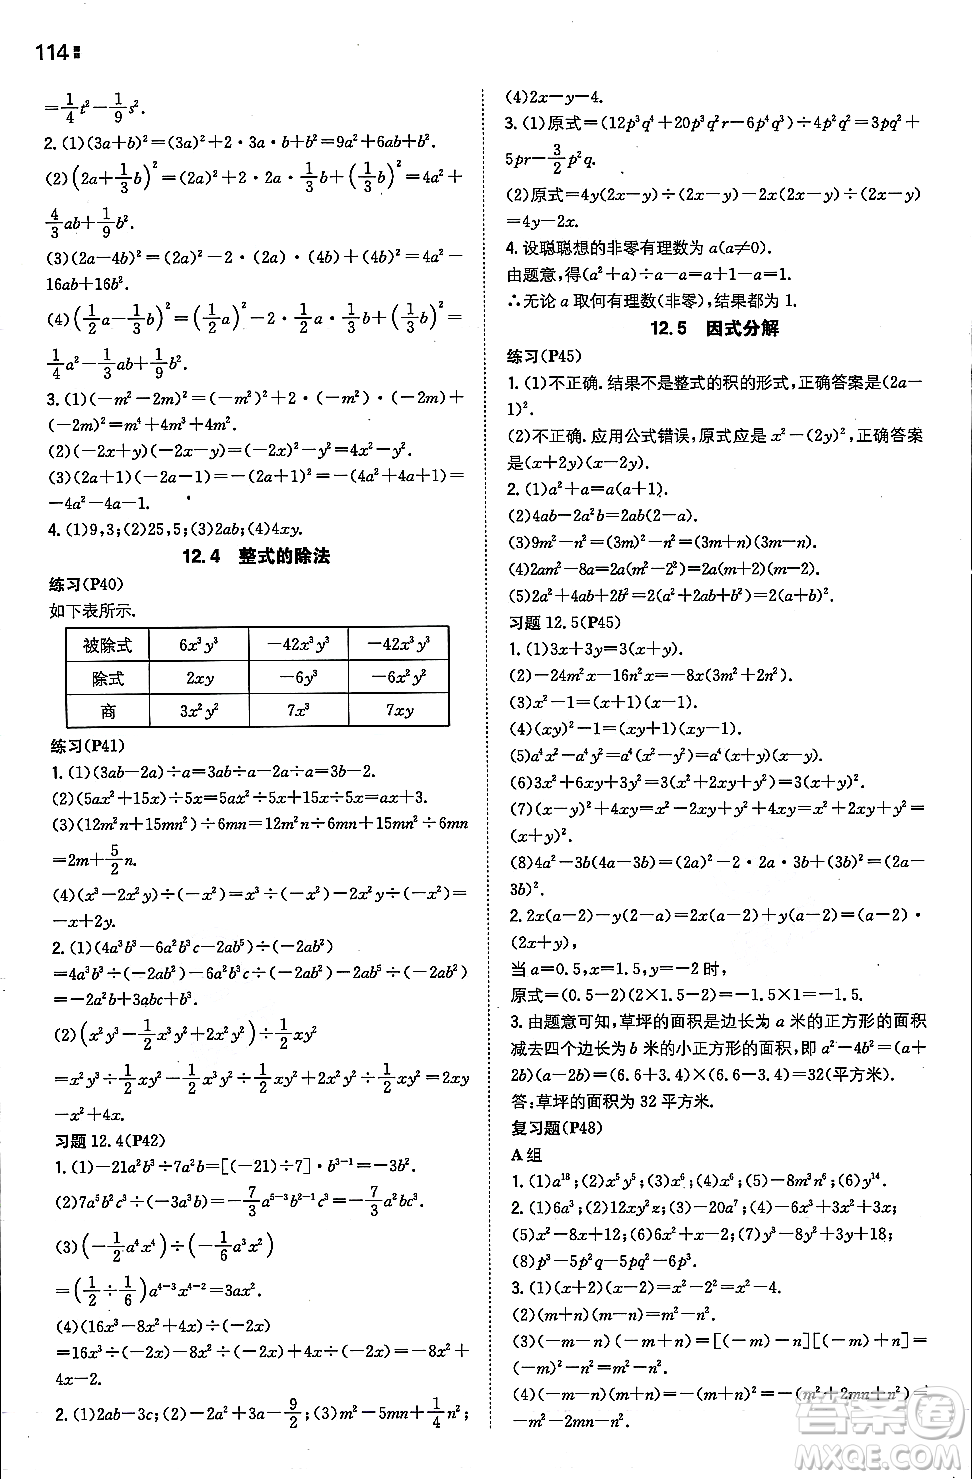 114
=1/4t²-1/9s².
2.(1)(3a+b)²=(3a)²+2·3a·b+b²=9a²+6ab+b².
(2)(2a+1/3b)²=(2a)²+2·2a·1/3b+(1/3b)²=4a²+
4/3ab+1/9b².
(3)(2a-4b)²=(2a)²-2·(2a)·(4b)+(4b)²=4a²-
16ab+16b².
(4)(1/2a-1/3b)²=(1/2a)²-2·1/2a·1/3b+(1/3b)²=
1/4a²-1/3ab+1/9b².
3.(1)(-m²-2m)²=(-m²)²+2·(-m²)·(-2m)+
(-2m)²=m⁴+4m³+4m².
(2)(-2x+y)(-2x-y)=(-2x)²-y²=4x²-y².
(3)(2a+1)(-2a-1)=-(2a+1)²=-(4a²+4a+1)=
-4a²-4a-1.
4.(1)9,3;(2)25,5;(3)2ab;(4)4xy.
12.4 整式的除法
练习(P40)
如下表所示.
被除式 6x³y³ -42x³y³ -42x³y³
除式 2xy -6y³ -6x²y²
商 3x²y² 7x³ 7xy
练习(P41)
1.(1)(3ab-2a)÷a=3ab÷a-2a÷a=3b-2.
(2)(5ax²+15x)÷5x=5ax²÷5x+15x÷5x=ax+3.
(3)(12m²n+15mn²)÷6mn=12m²n÷6mn+15mn²÷6mn
=2m+5/2n.
(4)(x³-2x²y)÷(-x²)=x³÷(-x²)-2x²y÷(-x²)=
-x+2y.
2.(1)(4a³b³-6a²b³c-2ab⁵)÷(-2ab²)
=4a³b³÷(-2ab²)-6a²b³c÷(-2ab²)-2ab⁵÷(-2ab²)
=-2a²b+3abc+b³.
(2)(x²y³-1/2x³y²+2x²y²)÷1/2xy²
=x²y³÷1/2xy²-1/2x³y²÷1/2xy²+2x²y²÷1/2xy²=2xy
-x²+4x.
习题12.4(P42)
1.(1)-21a²b³÷7a²b=[(-21)÷7]·b³⁻¹=-3b².
(2)7a⁵b²c³÷(-3a³b)=-7/3a⁵⁻³b²⁻¹c³=-7/3a²bc³.
(3)(-1/2a⁴x⁴)÷(-1/6a³x²)
=(1/2÷1/6)a⁴⁻³x⁴⁻²=3ax².
(4)(16x³-8x²+4x)÷(-2x)
=16x³÷(-2x)-8x²÷(-2x)+4x÷(-2x)=-8x²+
4x-2.
2.(1)2ab-3c;(2)-2a²+6a-9/2;(3)m²-5mn+1/4n²;
(4)2x-y-4.
3.(1)原式=(12p³q⁴+20p³q²r-6p⁴q³)÷4p²q²=3pq²+
5pr-3/2p²q.
(2)原式=4y(2x-y)÷(2x-y)-2x(2x-y)÷(2x-y)
=4y-2x.
4.设聪聪想的非零有理数为a(a≠0).
由题意,得(a²+a)÷a-a=a+1-a=1.
∴无论a取何有理数(非零),结果都为1.
12.5 因式分解
练习(P45)
1.(1)不正确.结果不是整式的积的形式,正确答案是(2a-
1)².
(2)不正确.应用公式错误,原式应为x²-(2y)²,正确答案
是(x+2y)(x-2y).
2.(1)a²+a=a(a+1).
(2)4ab-2a²b=2ab(2-a).
(3)9m²-n²=(3m)²-n²=(3m+n)(3m-n).
(4)2am²-8a=2a(m²-2²)=2a(m+2)(m-2).
(5)2a²+4ab+2b²=2(a²+2ab+b²)=2(a+b)².
习题12.5(P45)
1.(1)3x+3y=3(x+y).
(2)-24m²x-16n²x=-8x(3m²+2n²).
(3)x²-1=(x+1)(x-1).
(4)(xy)²-1=(xy+1)(xy-1).
(5)a⁴x²-a⁴y²=a⁴(x²-y²)=a⁴(x+y)(x-y).
(6)3x²+6xy+3y²=3(x²+2xy+y²)=3(x+y)².
(7)(x-y)²+4xy=x²-2xy+y²+4xy=x²+2xy+y²=
(x+y)².
(8)4a²-3b(4a-3b)=(2a)²-2·2a·3b+(3b)²=(2a-
3b)².
2.2x(a-2)-y(2-a)=2x(a-2)+y(a-2)=(a-2)·
(2x+y),
当a=0.5,x=1.5,y=-2时,
原式=(0.5-2)(2×1.5-2)=-1.5×1=-1.5.
3.由题意可知,草坪的面积是边长为a米的正方形的面积
减去四个边长为b米的小正方形的面积,即a²-4b²=(a+
2b)(a-2b)=(6.6+3.4)×(6.6-3.4)=32(平方米).
答:草坪的面积为32平方米.
复习题(P48)
A组
1.(1)a¹⁸;(2)x⁵y⁵;(3)x⁶;(4)x⁶;(5)-8m³n⁶;(6)y¹⁴.
2.(1)6a³;(2)12xy²z;(3)-20a⁷;(4)-6x³+3x²+3x;
(5)x²-8x+12;(6)x²-3xy-4y²;(7)2y²+12y+18;
(8)p³-5p²q-5pq²-6q³.
3.(1)(x+2)(x-2)=x²-2²=x²-4.
(2)(m+n)(m-n)=m²-n².
(3)(-m-n)(-m+n)=[(-m)-n][(-m)+n]=
(-m)²-n²=m²-n².
(4)(-m-n)(m+n)=-(m+n)²=-(m²+2mn+n²)=
-m²-2mn-n².
答案圈
MXQE.COM